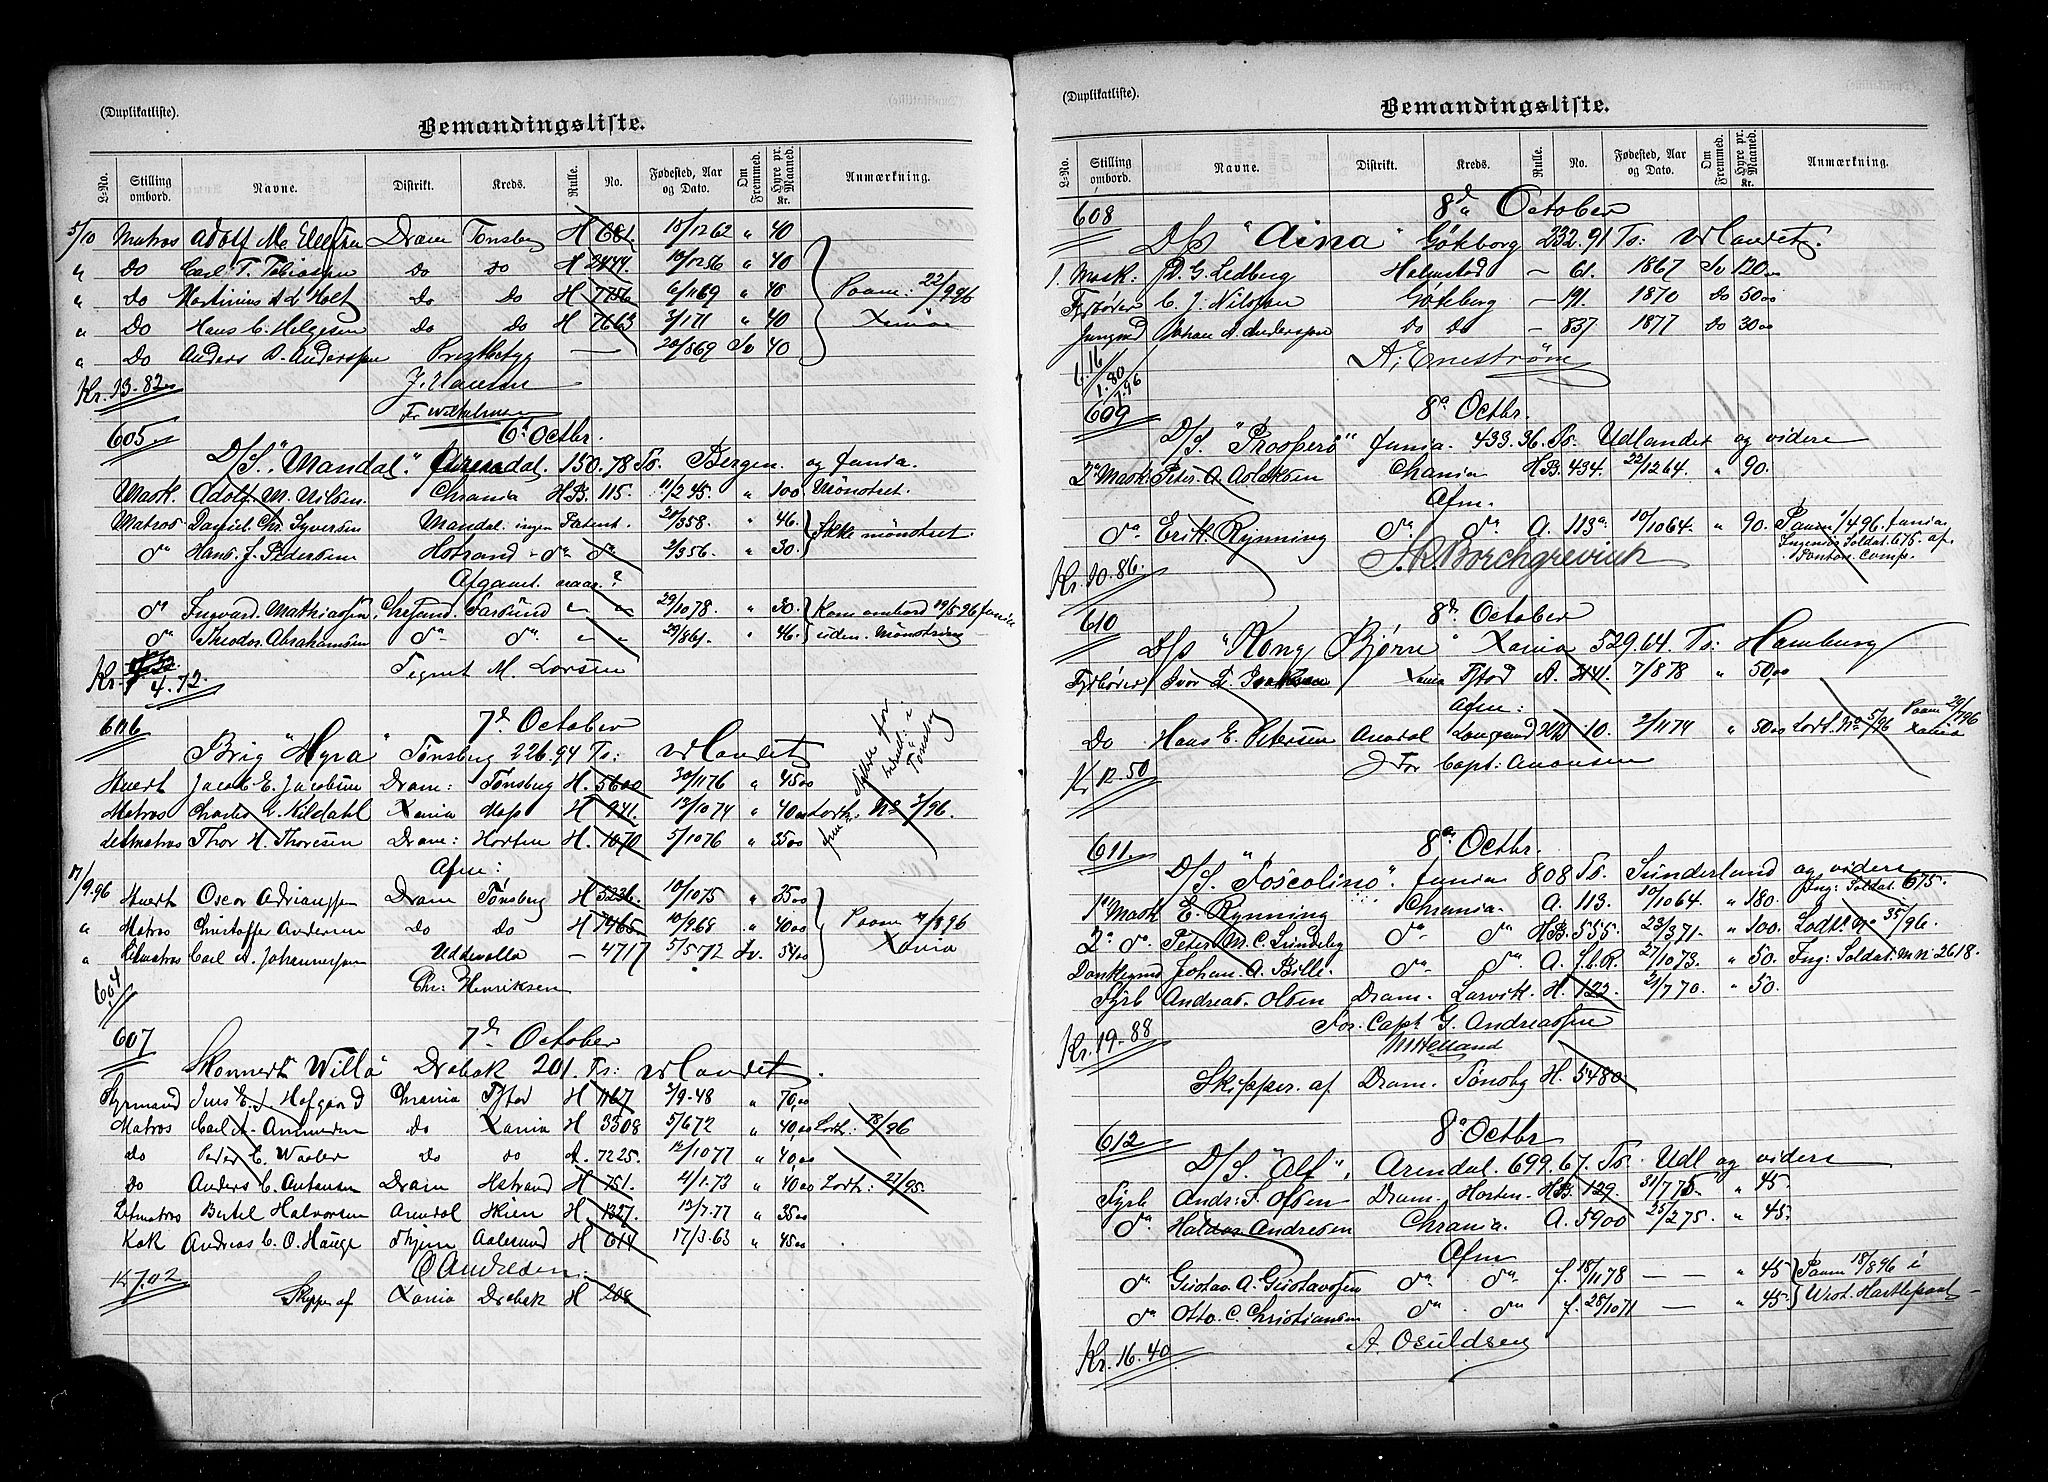 (Duplikatliste).
Bemandingsliste.
L-No. Stilling ombord. Navne. Distrikt. Kreds. Rulle. No. Fødested, Aar og Dato. Om Fremmed. Hyre pr. Maaned. Kr. Anmærkning.
5/10 Matros Adolf M. Ellefsen Dram Tønsberg H 681. 10/12 62 " 40
" Do Carl T. Tobiassen do do H 2444. 10/12 56 " 40
" Do Martinius A. L. Holt Do Do H 7756 6/11 69 " 40 Paam: 22/9 96
" Do Hans C. Helgesen do do H 7663 3/1 71 " 40 Xania
" Do Anders A. Anderssen — 20/8 69 Sv 40
Kr. 13.82 J. Hansen
Fr. Wilhelmsen
605 6te Octbr.
D/S. "Mandal". Arendal. 150.78 To. Bergen og fania.
Mask. Adolf M. Nilsen. Chrania HB. 115. 11/2 45. " 100 Mønstret.
Matros Daniel Chr. Syversen Mandal. ingen Patent. 21/3 58. " 46. Ikke mønstret.
do Hans J. Pedersen Hstrand - do do 2/3 56. " 30.
Afgaaet naar?
do Ingvard Mathiassen, Chrsand. Farsund " " 29/10 78. " 30. Kom ombord 19/5 96 fania
do Theodor Abrahamsen do do " " 29/8 61. " 46. uden Mønstring
Kr. 4.72 Tignet M. Larsen
606 7de October
Brig "Hyra" Tønsberg 226.94 Ts: Udlandet
Stuert Jacob E. Jacobsen Dram: Tønsberg H. 5600 20/11 76 " 45 00
Matros Charles L. Kildahl Xania Moss H 941. 12/10 74 " 40 00 Lodt. No 2/96.
Letmatros Thor H. Thoresen Dram: Horten H. 1070 5/10 76 " 35 00
Afm:
17/9.96 Stuert Oscar Adrianssen Dram Tønsberg H 5236. 10/10 75 " 35 00
" Matros Christoffer Andersen Do do H 7465 10/9 68 " 40 00 Paam 4/8 96
" Letmatros Carl A. Johannessen Uddevalla — 4717 5/5 72 Sv. 54 00 Xania
6.04 Chr: Henriksen
607 7de October
Skonnert Willa Drøbak 201. Ts: Udlandet.
Styrmand Jens E. J. Hofgaard Chrania Fstad H 1167 3/9.48 " 70,00
Matros Carl A. Amundsen do Xania H 3308 5/6 72 " 40,00 Lodt: 78/96
do Peder E. Waaler do do A. 7225. 12/10 77 " 40,00
do Anders C. Antonsen Dram Hstrand H 751. 4/1.73 " 40,00 Lodt: 27/95.
Letmatros Bertel Halvorsen Arendal Skien H. 1327. 13/7.77 " 35 00
Kok Andreas C. O. Hauge Thjem Aalesund H 614 17/3.63 " 45 00
K 7.02 O Andresen.
Skipper af Xania Drøbak H 208
(Duplikatliste).
Bemandingsliste.
L-No. Stilling ombord. Navne. Distrikt. Kreds. Rulle. No. Fødested, Aar og Dato. Om Fremmed. Hyre pr. Maaned. Kr. Anmærkning.
608 8de October
D/s "Aina" Gøteborg 232.91 Ts: Udlandet.
1. Mask: D. G. Ledberg Halmstad — 61. 1867 Sv 120 00
Fyrbøder C. J. Nilsson Gøteborg — 191. 1870 do 50 00
Jungmd Johan A. Anderssen do do — 837 1877 do 30 00
6.16 A. Eneström
1.80
7.96
609 8de Octbr.
D/S. "Prospero" fania. 433.36. To. Udlandet og videre
2n Mask. Peter A. Aslaksen Chania HB. 434. 22/12 64. " 90.
Afm.
do Erik Rynning do do A. 113a. 10/10 64. " 90. Paam 1/4 96. fania
Ingeniør Soldat 675. af
Ponton Comp.
Kr. 10.86. Borchgrevink
610 8de October
D/s "Kong Bjørn" Xania 529.64. Ts: Hamburg
Fyrbøder Ivor L. Xania Fstad A. 3141. 7/8 78 " 50,00
Afm:
Do Hans E. Petersen Arendal 10. 2/11 74 " 50 00 Lodt. No 5/96 Paam 29/7 96 Xania
Kr 12.50 For Capt: Amonsen
611. 8de Octbr.
D/S. "Toscolino". fania 808 To. Sunderland og videre
1e Mask. E. Rynning Chrania. A. 113. 10/10 64. " 180. Ing: Soldat. 675.
2e do. Peter M. C. Lundeby do do HB. 555. 23/3 71. " 100. Lodt. No 35/96.
Donkeymd Johan. A. Bille. do do A. f.C.R. 27/10 73. " 50. Ing: Soldat. m N 2618.
Fyrb Andreas. Olsen Dram. Larvik. H. 123. 21/7 70. " 50.
Kr. 19.88 For. Capt G. Andreassen
M Helland
Skipper. af Dram. Tønsbg H. 5480.
612 8de Octbr
D/S. "Alf", Arendal. 699.67. To. Udl og videre
Fyrb Andr. F. Olsen Dram. Horten. HB. 129. 31/7 75. " 45
do Halvor Andresen Chrania. A. 5900 25/2 75. " 45.
Afm
do Gustav. A. Gustavssen do do f. 18/11 78 — — " 45 Paam 18/8 96 i
do Otto. C. Christiansen do do f. 28/10 71 — " 45. West. Hartlepool
Kr. 16.40. A. Osuldsen